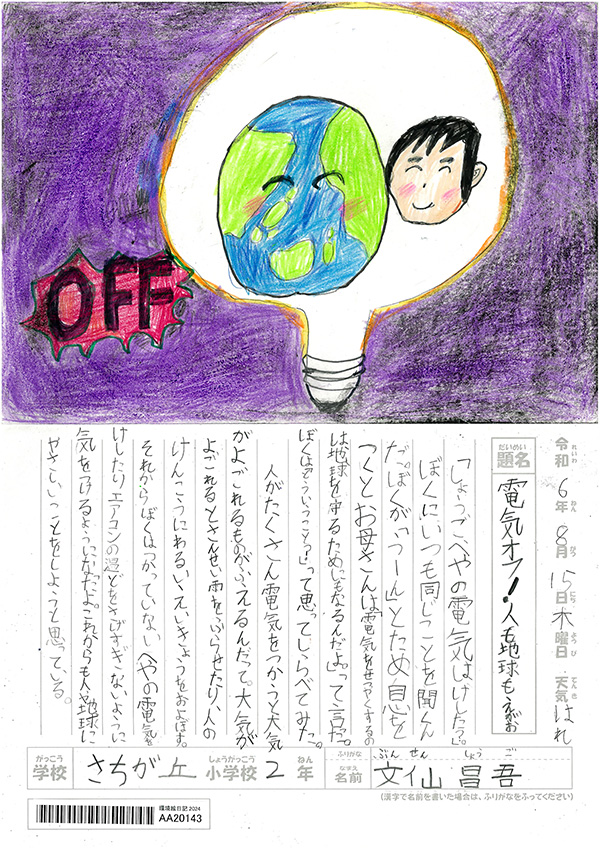 OFF
令和6年8月15日木曜日 天気 はれ
題名 電気オフ!人も地球もえがお
「しょうご、へやの電気はけしたの?」
ぼくにいつも同じことを聞くん
だ。ぼくが「つーん」とため息を
つくとお母さんは電気をせつやくするの
は地球を守るためにもなるんだよ。って言った。
ぼくは「どういうこと?」って思ってしらべてみた。
人がたくさん電気をつかうと大気
がよごれるものがふえるんだって。大気が
よごれるとさんせい雨をふらせたり、人の
けんこうにわるいえいきょうをおよぼす。
それからぼくはつかっていないへやの電気を
けしたりエアコンの温どをさげすぎないように
気をつけるようになったよ。これからも人や地球に
やさしいことをしようと思っている。
がっこう しょうがっこう ねん ふりがな ぶん せん しょう ご
学校 さちが丘 小学校 2 年 なまえ 名前 文仙 昌吾
(漢字で名前を書いた場合は、ふりがなをふってください)
環境絵日記2024
AA20143